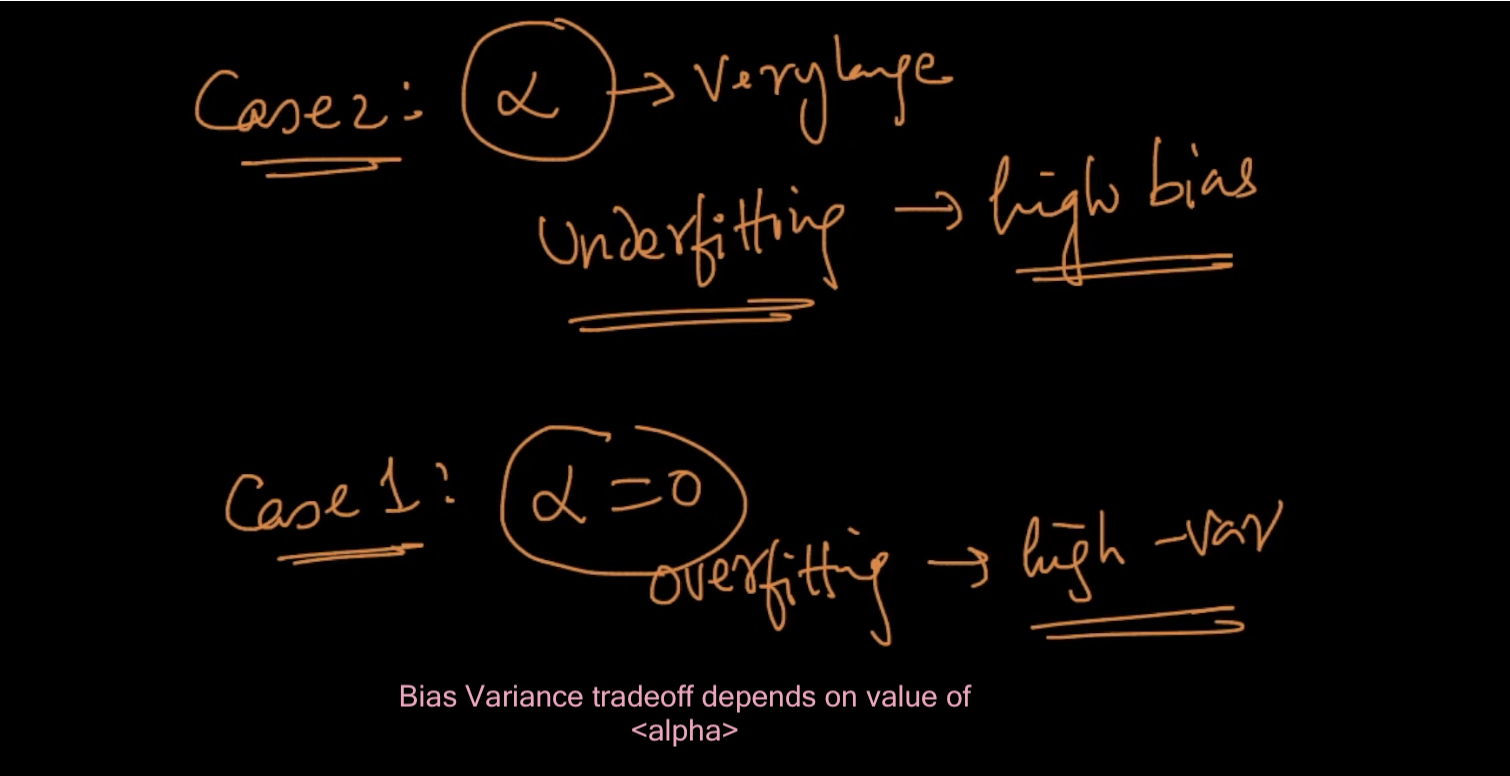 Case 2: α → Very large
Underfitting → high bias
Case 1: α = 0
overfitting → high-var
Bias Variance tradeoff depends on value of
<alpha>